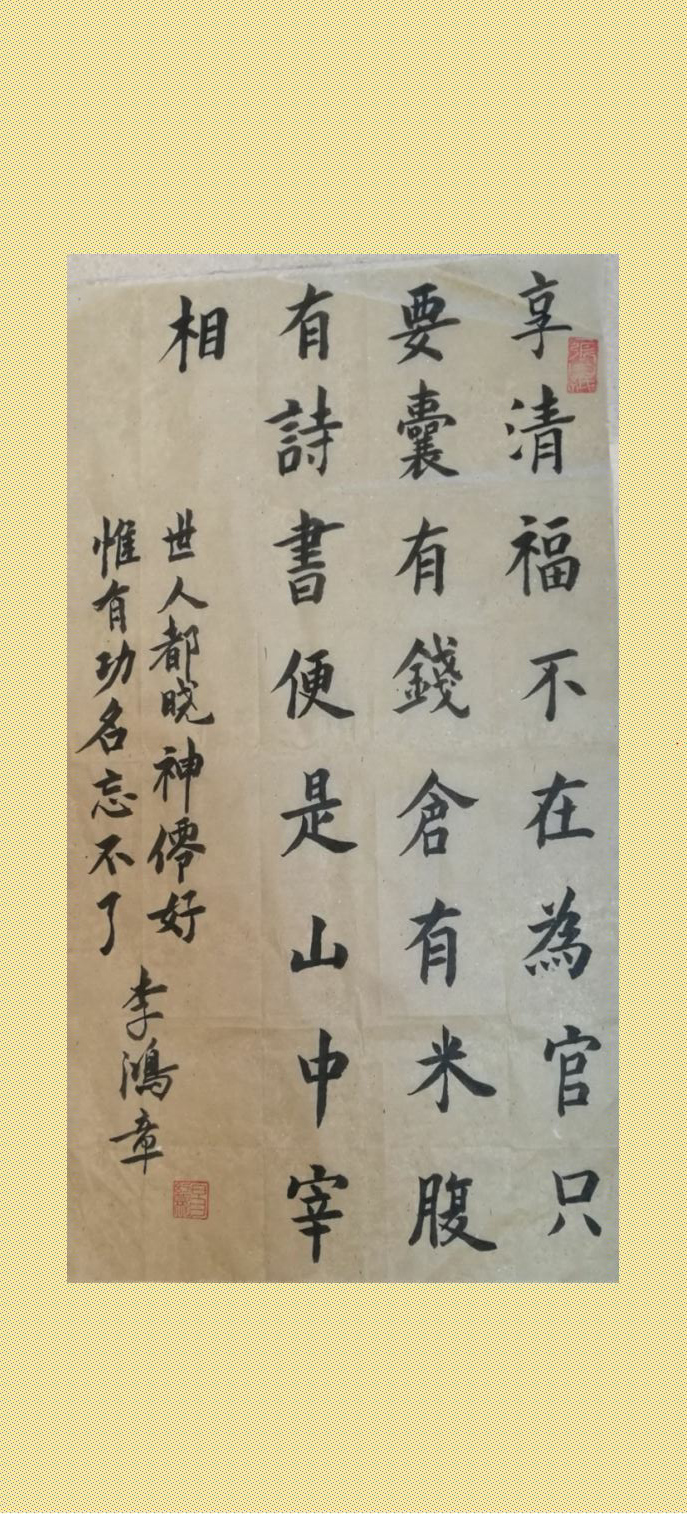 享清福不在為官只
要囊有錢倉有米腹
有詩書便是山中宰
相
世人都晓神僊好
惟有功名忘不了
李鴻章